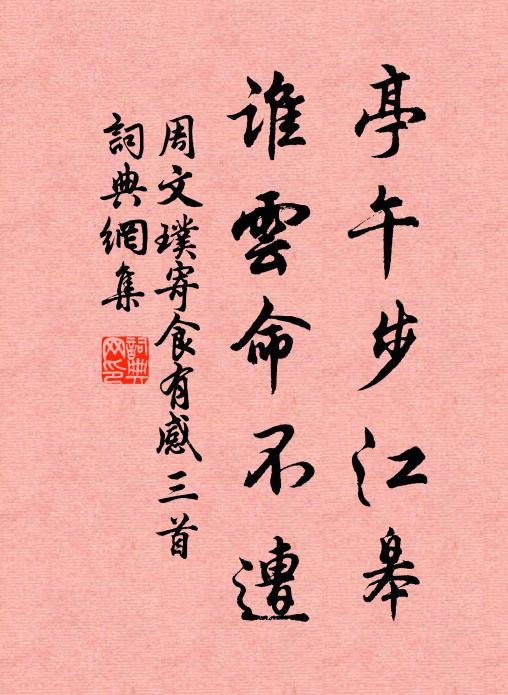 亭午步江皋
誰雲命不遭
周文璞寄食有感三首
詞典網集
詞典
网印